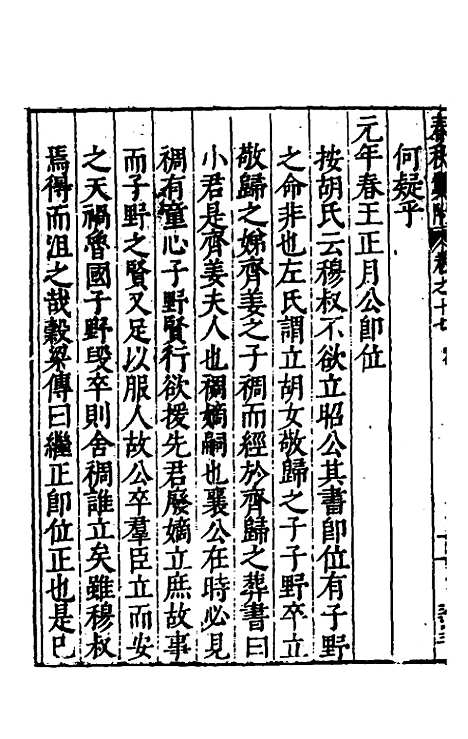 春秋
卷之十七
何疑乎
元年春王正月公卽位
按胡氏云穆叔不欲立昭公其書卽位有子野
之命非也左氏謂立胡女敬歸之子子野卒立
敬歸之娣齊姜之子稠而經於齊歸之葬書曰
小君是齊姜夫人也稠嫡嗣也襄公在時必見
稠有童心子野賢行欲援先君廢嫡立庶故事
而子野之賢又足以服人故公卒羣臣立而安
之天禍魯國子野毀卒則舍稠誰立矣雖穆叔
焉得而沮之哉穀梁傳曰繼正卽位正也是巳